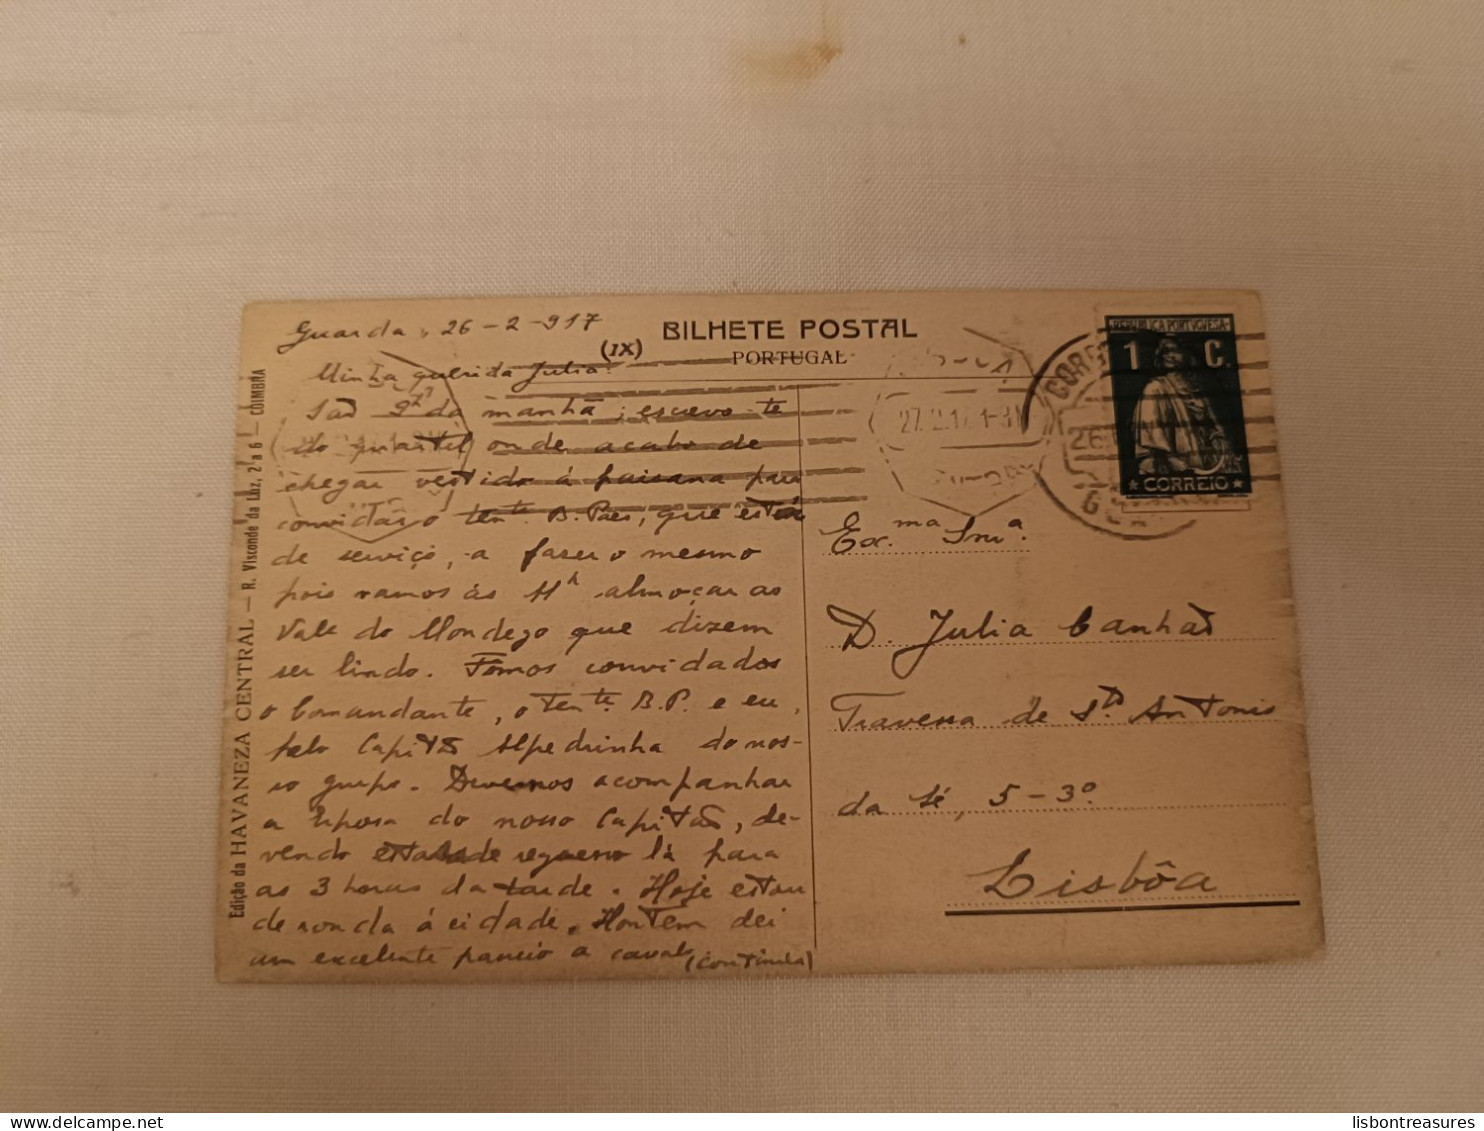 BILHETE POSTAL
PORTUGAL
(IX)
Edição da HAVANEZA CENTRAL — R. Visconde da Luz, 2 a 6 — COIMBRA
Guarda, 26-2-917
Minha querida Julia:
São 9 da manhã; escrevo-te
do quartel onde acabo de
chegar vestido á paisana para
convidar o tente. B. Paes, que está
de serviço, a fazer o mesmo
pois vamos ás 11h almoçar ao
Vale do Mondego que dizem
ser lindo. Fômos convidados
o Comandante, o tente. B.P. e eu,
pelo Capitão Alpedrinha do nos-
so grupo. Devemos acompanhar
a esposa do nosso Capitão, de-
vendo estar de regresso lá para
as 3 horas da tarde. Hoje estou
de ronda á cidade. Hontem dei
um excelente passeio a cavalo
(Continúa)
REPUBLICA PORTUGUESA
1 C.
CORREIO
27.2.17 1-3
26
Ex.ma Snr.a
D. Julia Canhão
Travessa de Sto Antonio
da Sé, 5-3º
Lisbôa
lisbontreasures.com